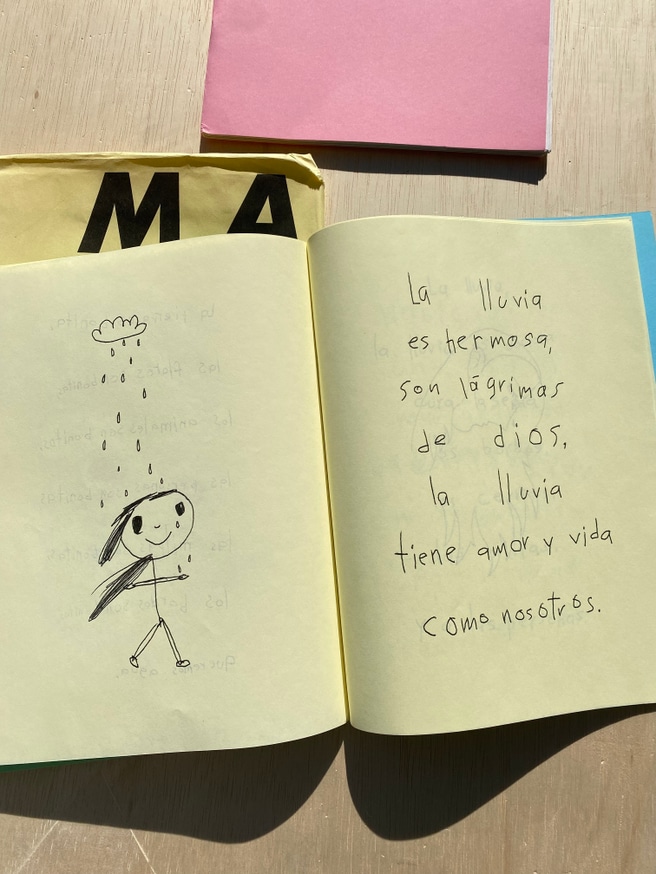 MA
La lluvia
es hermosa,
son lágrimas
de dios,
la lluvia
tiene amor y vida
como nosotros.